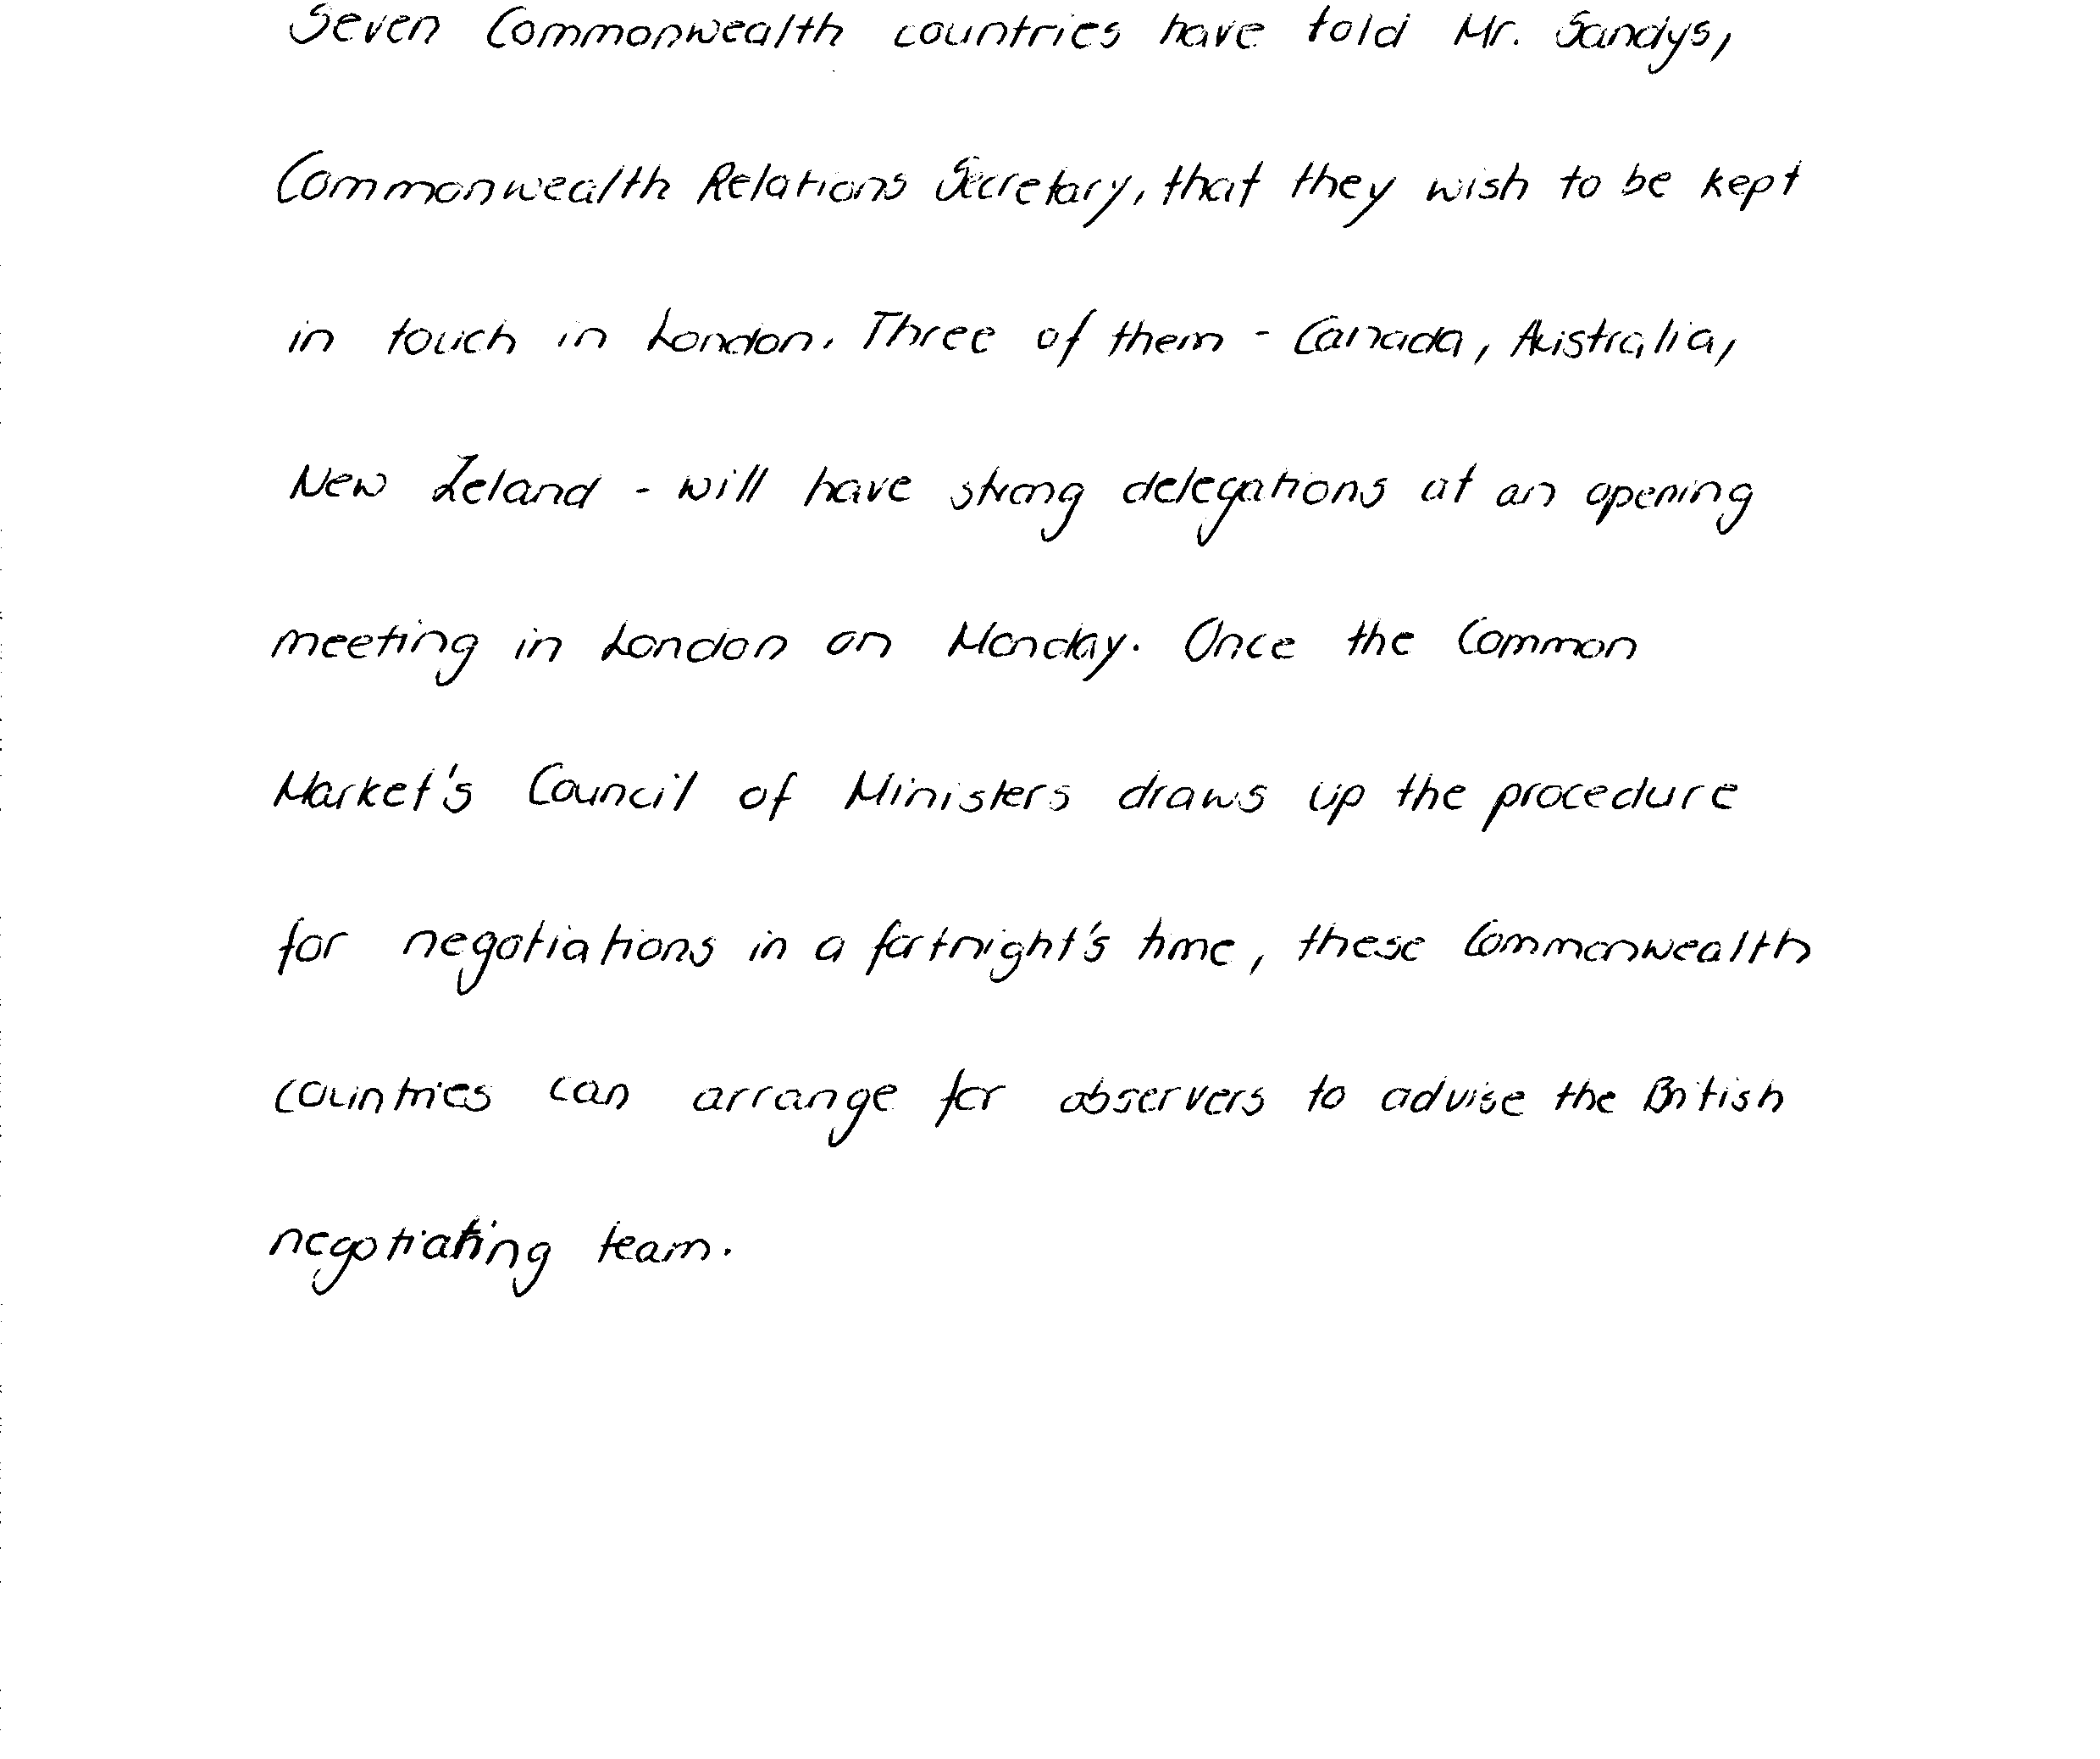 Seven Commonwealth countries have told Mr. Sandys,
Commonwealth Relations Secretary, that they wish to be kept
in touch in London. Three of them - Canada, Australia,
New Zeland - will have strong delegations at an opening
meeting in London on Monday. Once the Common
Market's Council of Ministers draws up the procedure
for negotiations in a fortnight's time, these Commonwealth
countries can arrange for observers to advise the British
negotiating team.